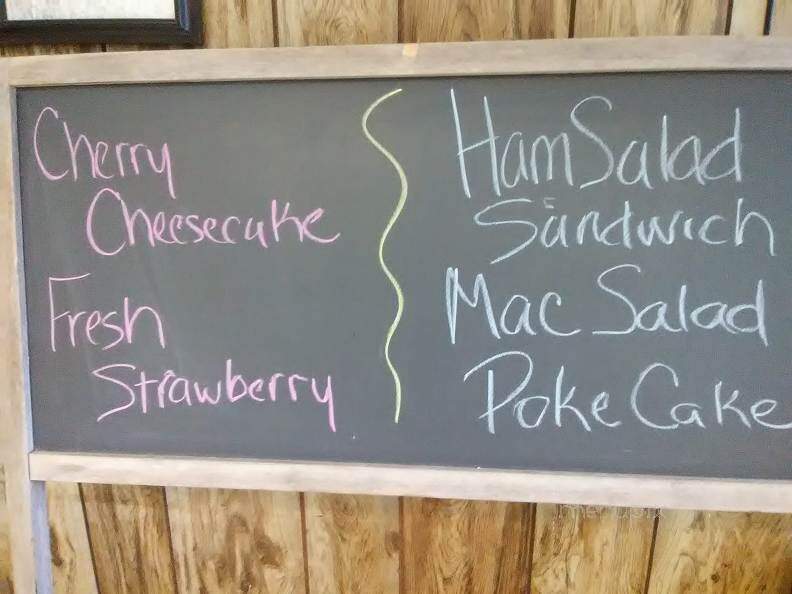 Cherry
Cheesecake
Fresh
Strawberry
Ham Salad
Sandwich
Mac Salad
Poke Cake